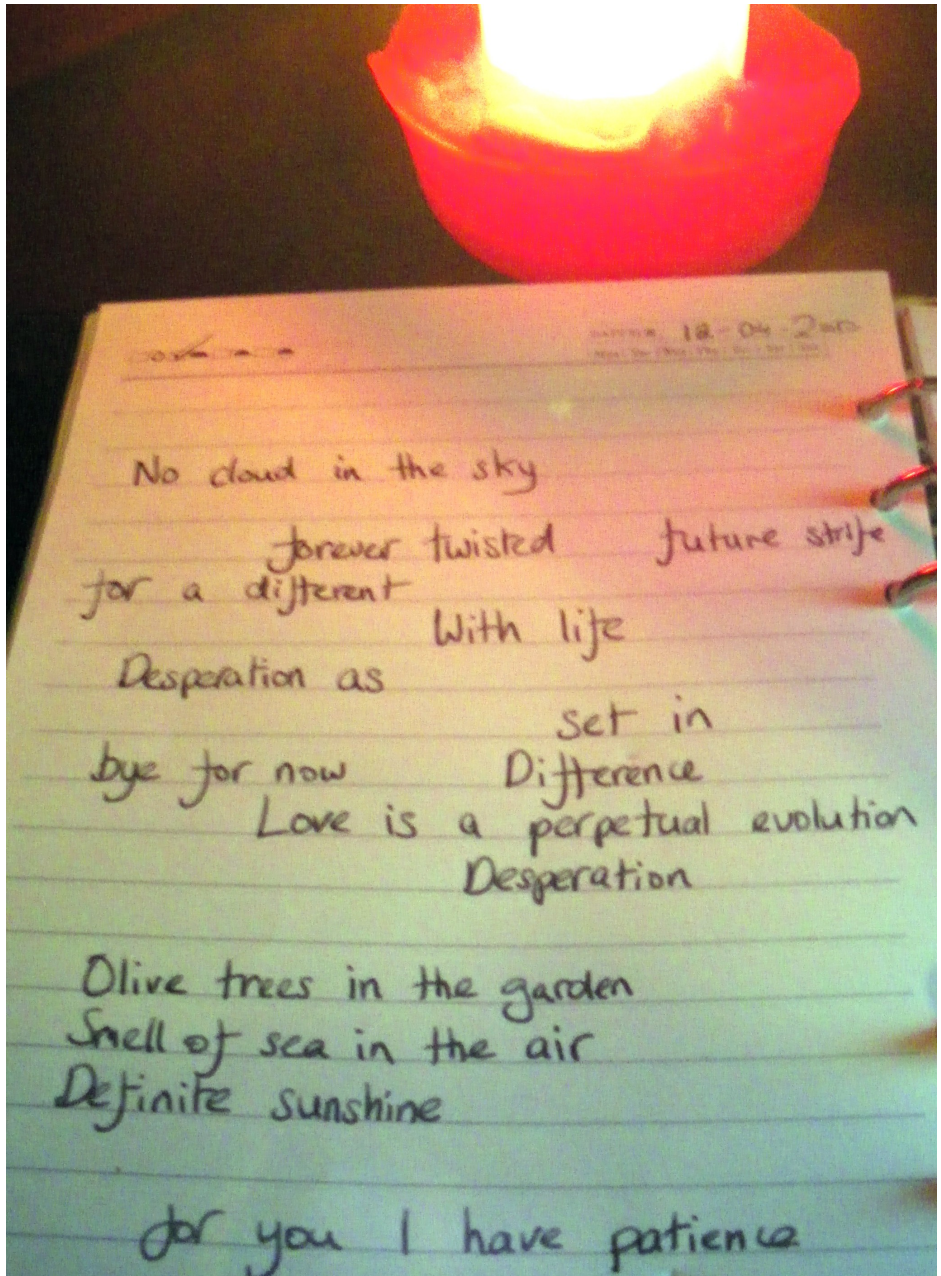 18-04-2010
No cloud in the sky
forever twisted future strife
for a different
With life
Desperation as
set in
bye for now Difference
Love is a perpetual evolution
Desperation
Olive trees in the garden
Smell of sea in the air
Definite sunshine
for you I have patience